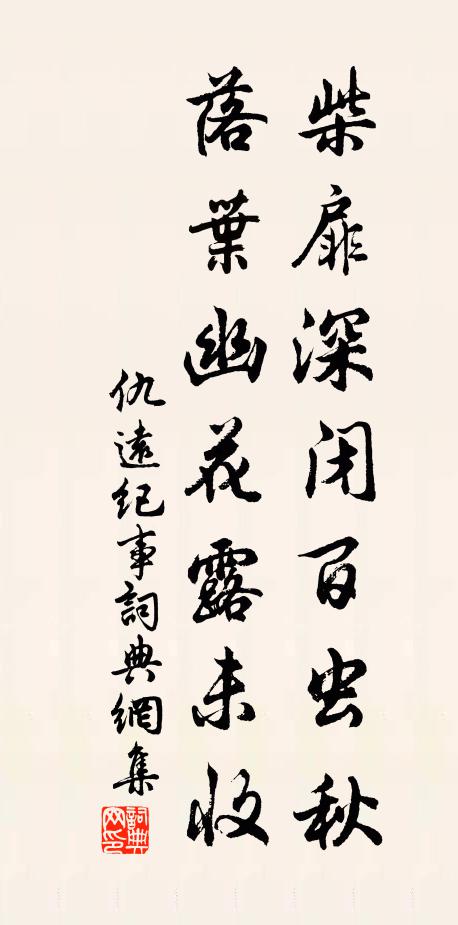 柴扉深闭百虫秋
落叶幽花露未收
仇遠纪事詞典網集
詞典网印